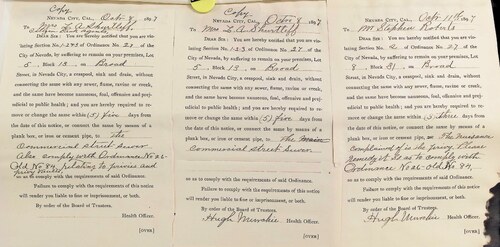 Copy
NEVADA CITY, CAL. Octr 8 1897
To Mrs L. A. Shurtleff
DEAR SIR: You are hereby notified that you are vio-
lating Section No. 1-2&3 of Ordinance No. 27 of the
City of Nevada, by suffering to remain on your premises, Lot
5, Block 13 on Broad
Street, in Nevada City, a cesspool, sink and drain, without
connecting the same with any sewer, flume, ravine or creek,
and the same have become nauseous, foul, offensive and prej-
udicial to public health; and you are hereby required to re-
move or change the same within (5) five days from the
date of this notice, or connect the same by means of a
plank box, or iron or cement pipe, to the
Commercial Street Sewer
Also comply with Ordinance No 21-
Old No 24, relating to privies and
privy vaults,
so as to comply with the requirements of said Ordinance.
Failure to comply with the requirements of this notice
will render you liable to fine or imprisonment, or both.
By order of the Board of Trustees.
Health Officer.
[OVER]
Copy
NEVADA CITY, CAL. Octr 8 1897
To Mrs L. A. Shurtleff
DEAR SIR: You are hereby notified that you are vio-
lating Section No. 1-2-3 of Ordinance No. 27 of the
City of Nevada, by suffering to remain on your premises, Lot
5, Block 13 on Broad
Street, in Nevada City, a cesspool, sink and drain, without
connecting the same with any sewer, flume, ravine or creek,
and the same have become nauseous, foul, offensive and prej-
udicial to public health; and you are hereby required to re-
move or change the same within (5) five days
from the date of this notice, or connect the same by means
of a plank box, or iron or cement pipe, to The Main
Commercial Street Sewer
so as to comply with the requirements of said Ordinance.
Failure to comply with the requirements of this notice
will render you liable to fine or imprisonment, or both.
By order of the Board of Trustees.
Hugh Murchie
Health Officer.
[OVER]
NEVADA CITY, CAL. Octr 11th 1897
To Mr Stephen Roberts
DEAR SIR: You are hereby notified that you are vio-
lating Section No. 2 of Ordinance No. 27 of the
City of Nevada, by suffering to remain on your premises, Lot
8, Block 31 on Broad
Street, in Nevada City, a cesspool, sink and drain, without
connecting the same with any sewer, flume, ravine or creek,
and the same have become nauseous, foul, offensive and prej-
udicial to public health; and you are hereby required to re-
move or change the same within three days
from the date of this notice, or connect the same by means
of a plank box, or iron or cement pipe, to The nuisance
complained of is the privy. Please
remedy it so as to comply with
Ordinance No 21- old No 24,
so as to comply with the requirements of said Ordinance.
Failure to comply with the requirements of this notice
will render you liable to fine or imprisonment, or both.
By order of the Board of Trustees.
Hugh Murchie
Health Officer.
[OVER]